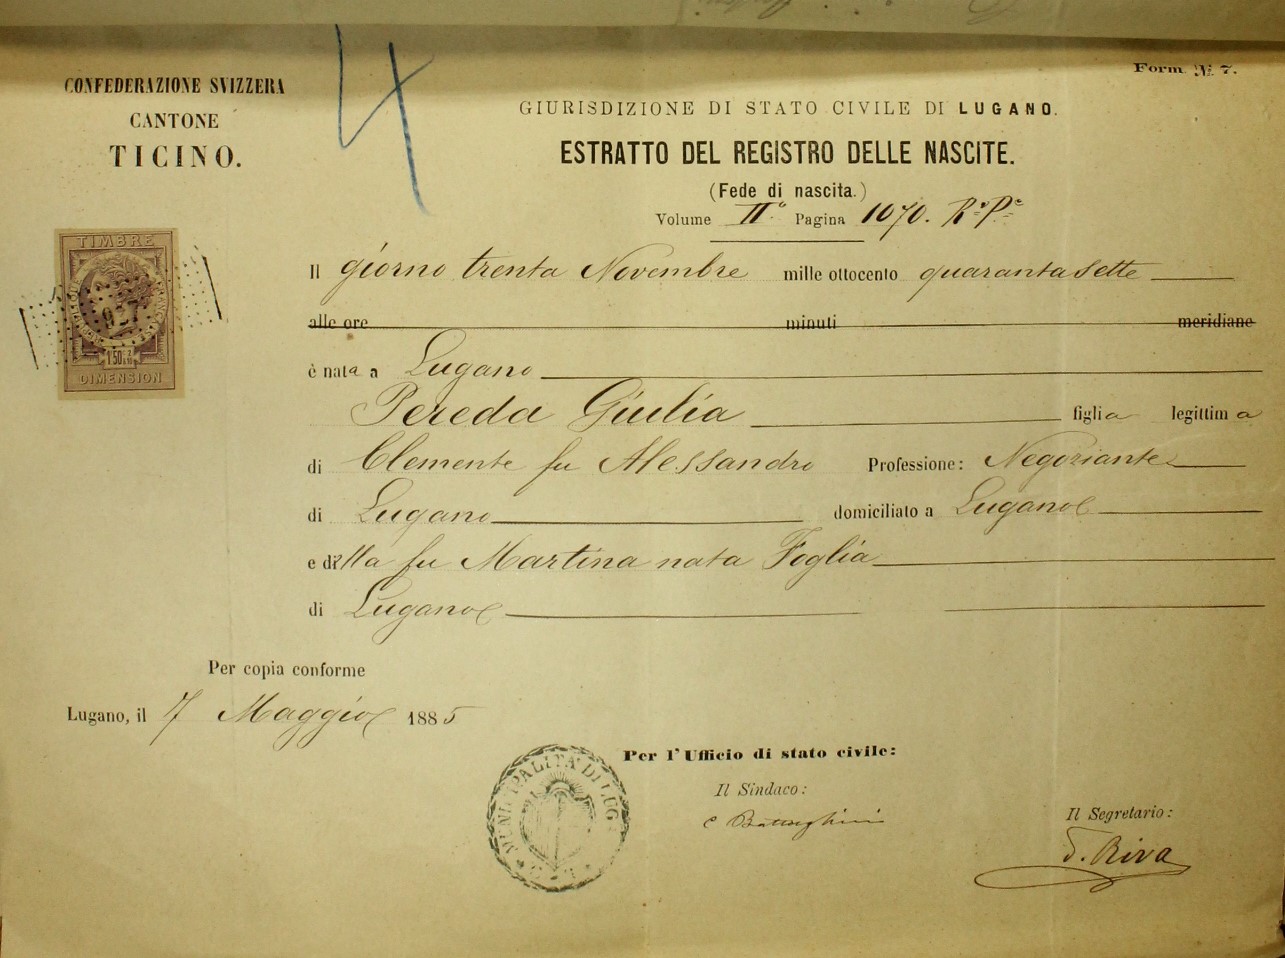 4
CONFEDERAZIONE SVIZZERA
CANTONE
TICINO.
Form. № 7.
GIURISDIZIONE DI STATO CIVILE DI LUGANO.
ESTRATTO DEL REGISTRO DELLE NASCITE.
(Fede di nascita.)
Volume II° Pagina 1070. R.° P.e
TIMBRE
927
1F50
DIMENSION
Il giorno trenta Novembre mille ottocento quarantasette
alle ore minuti meridiane
è nata a Lugano
Pereda Giulia figlia legittima
di Clemente fu Alessandro Professione: Negoziante
di Lugano domiciliato a Lugano
e di lla fu Martina nata Foglia
di Lugano
Per copia conforme
Lugano, il 7 Maggio 1885
MUNICIPALITÀ DI LUG
Per l'Ufficio di stato civile:
Il Sindaco:
Il Segretario:
Riva